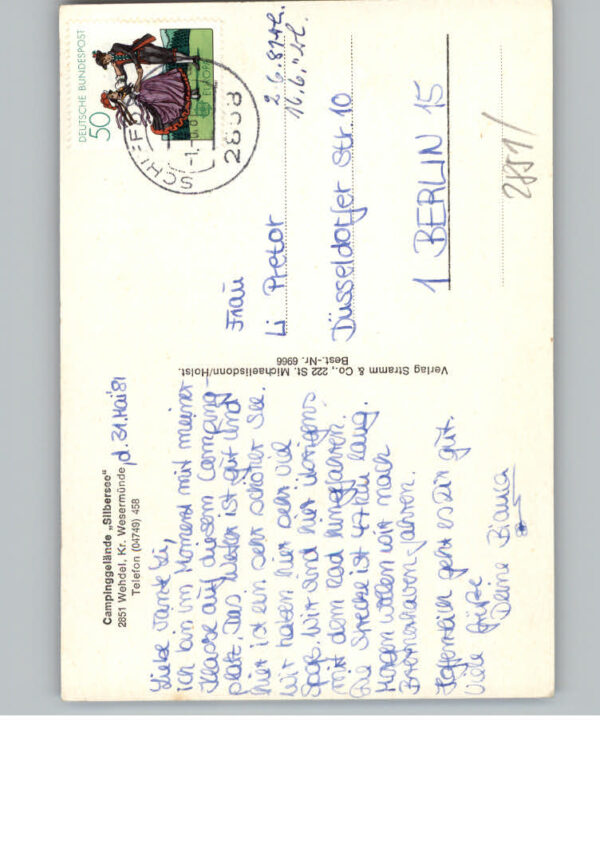 Campinggelände „Silbersee“
2851 Wehdel, Kr. Wesermünde
Telefon (04749) 458
d. 31. Mai 81
Liebe Tante Li,
ich bin im Moment mit meiner
Klasse auf diesem Camping-
platz. Das Wetter ist gut und
hier ist ein sehr schöner See.
Wir haben hier sehr viel
Spaß. Wir sind hier übrigens
mit dem Rad hingefahren.
Die Strecke ist 47 km lang.
Morgen wollen wir nach
Bremerhaven fahren.
Hoffentlich geht es Dir gut.
Viele Grüße
Deine Bianca
Verlag Stramm & Co., 222 St. Michaelisdonn/Holst.
Best.-Nr. 6966
DEUTSCHE BUNDESPOST
50
EUROPA
SCHIFFD
-1.
2858
2.6.81
16.6.
Frau
Li Pretor
Düsseldorfer Str. 10
1 BERLIN 15
2851/